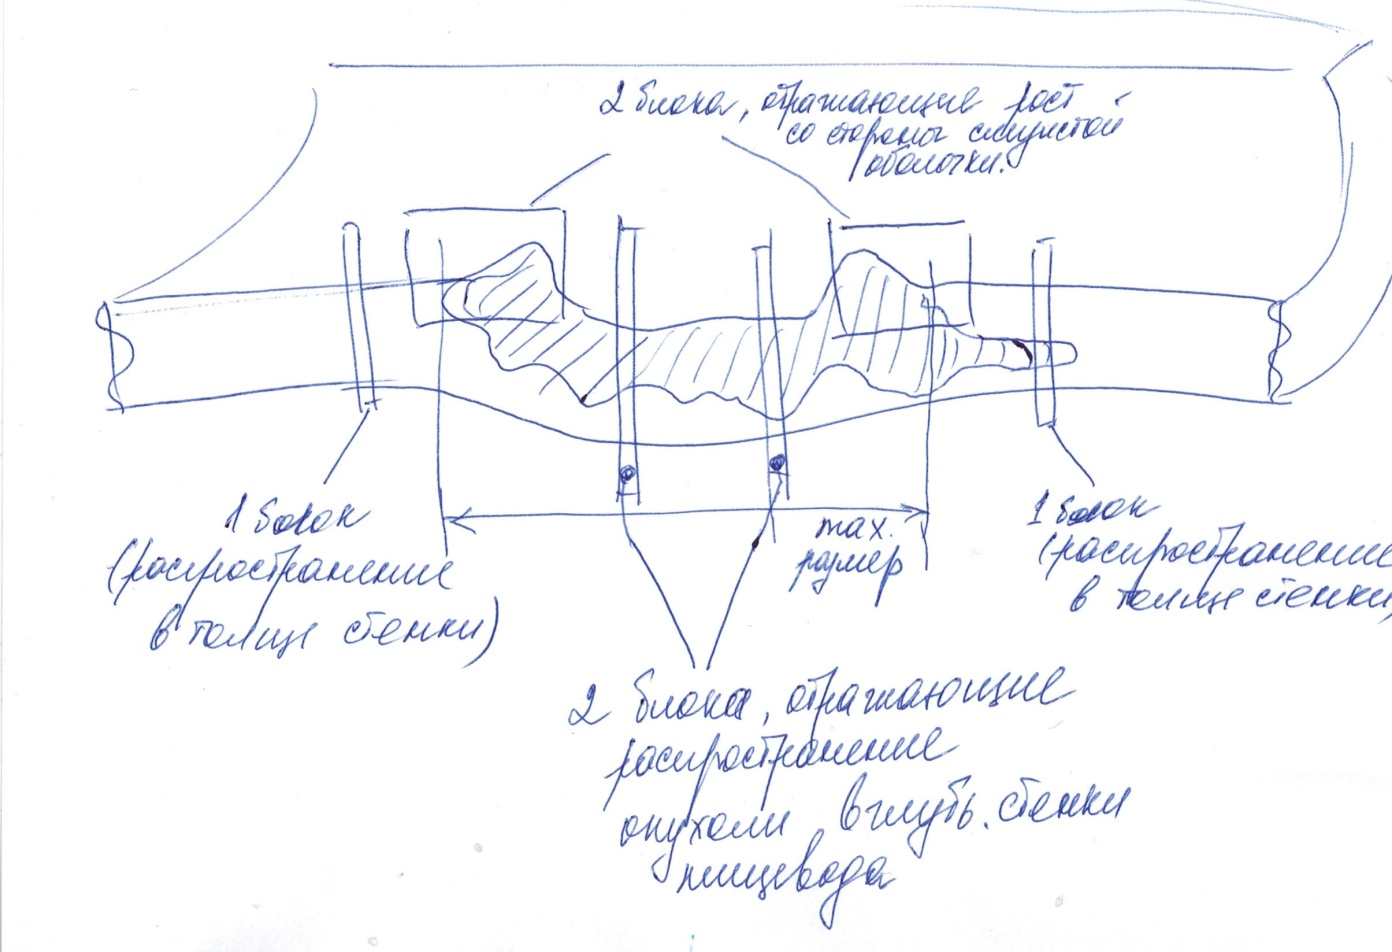 2 блока, отражающие рост
со стороны слизистой
оболочки.
1 блок
(распространение
в толще стенки)
max.
размер
1 блок
(распространение
в толще стенки)
2 блока, отражающие
распространение
опухоли вглубь стенки
пищевода